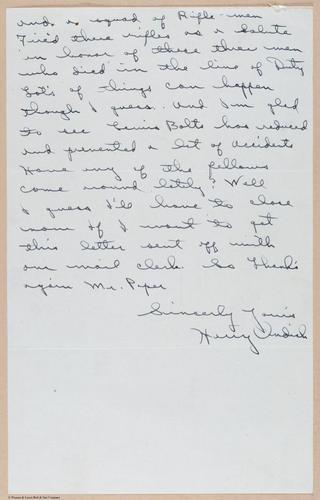 and a squad of Rifle-men
Fired there rifles as a Salute
in honor of these three men
who died in the line of Duty
Lot's of things can happen
though I guess. And I'm glad
to see Bolts has reduced
and prevented a lot of accidents
Have any of the fellows
come around lately? Well
I guess I'll have to close
now if I want to get
this letter sent off with
our mail clerk. So Thanks
again Mr. Piper
Sincerely Yours
Henry